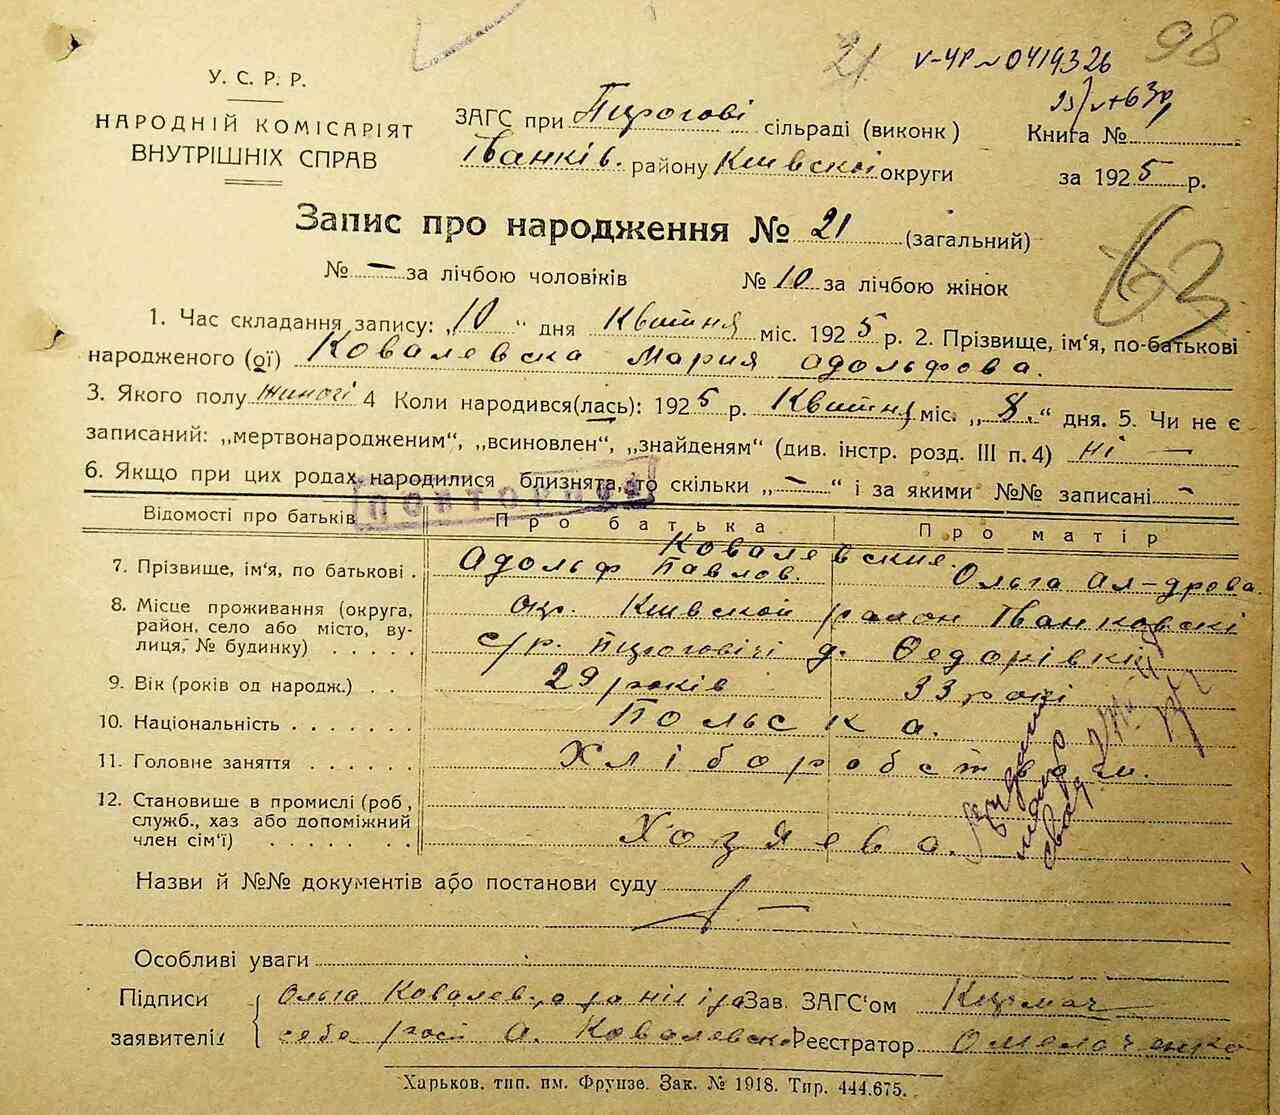 21 V-ЧР № 0419326 98
У. С. Р. Р.
НАРОДНІЙ КОМІСАРІЯТ
ВНУТРІШНІХ СПРАВ
ЗАГС при Пирогові сільраді (виконк)
Іванків. району Київскої округи
Книга №
за 1925 р.
Запис про народження № 21 (загальний)
63
№ — за лічбою чоловіків № 10 за лічбою жінок
1. Час складання запису: „10“ дня Квитня міс. 1925 р. 2. Прізвище, ім'я, по-батькові
народженого (ої) Ковалевска Мария Адольфова.
3. Якого полу жиночі 4 Коли народився(лась): 1925 р. Квитня міс. „8.“ дня. 5. Чи не є
записаний: „мертвонародженим“, „всиновлен“, „знайденям“ (див. інстр. розд. III п. 4) ні —
6. Якщо при цих родах народилися близнята, то скільки „—“ і за якими №№ записані –
ПОВТОРНИЙ
Відомості про батьків Про батька Про матір
Ковалевские.
7. Прізвище, ім'я, по батькові . Адольф Павлов. Ольга Ал-дрова.
8. Місце проживання (округа, окр. Киевской район Іванковскі
район, село або місто, ву-
лиця, № будинку) . . . . . с/р. Пироговічі д. Федорівки
9. Вік (років од народж.) . . 29 років 33 рокі
10. Національність . . . . . . . Польска.
11. Головне заняття . . . . . . Хліборобством.
12. Становище в промислі (роб,
служб., хаз або допоміжний
член сім'ї) . . . . . . . Хозяева.
Назви й №№ документів або постанови суду
Особливі уваги
Підписи Ольга Ковалевска Зав. ЗАГС'ом Кузмач
заявителів себе росп А. Ковалевско Реєстратор Омелаченко
Харьков. тип. им. Фрунзе. Зак. № 1918. Тир. 444.675.